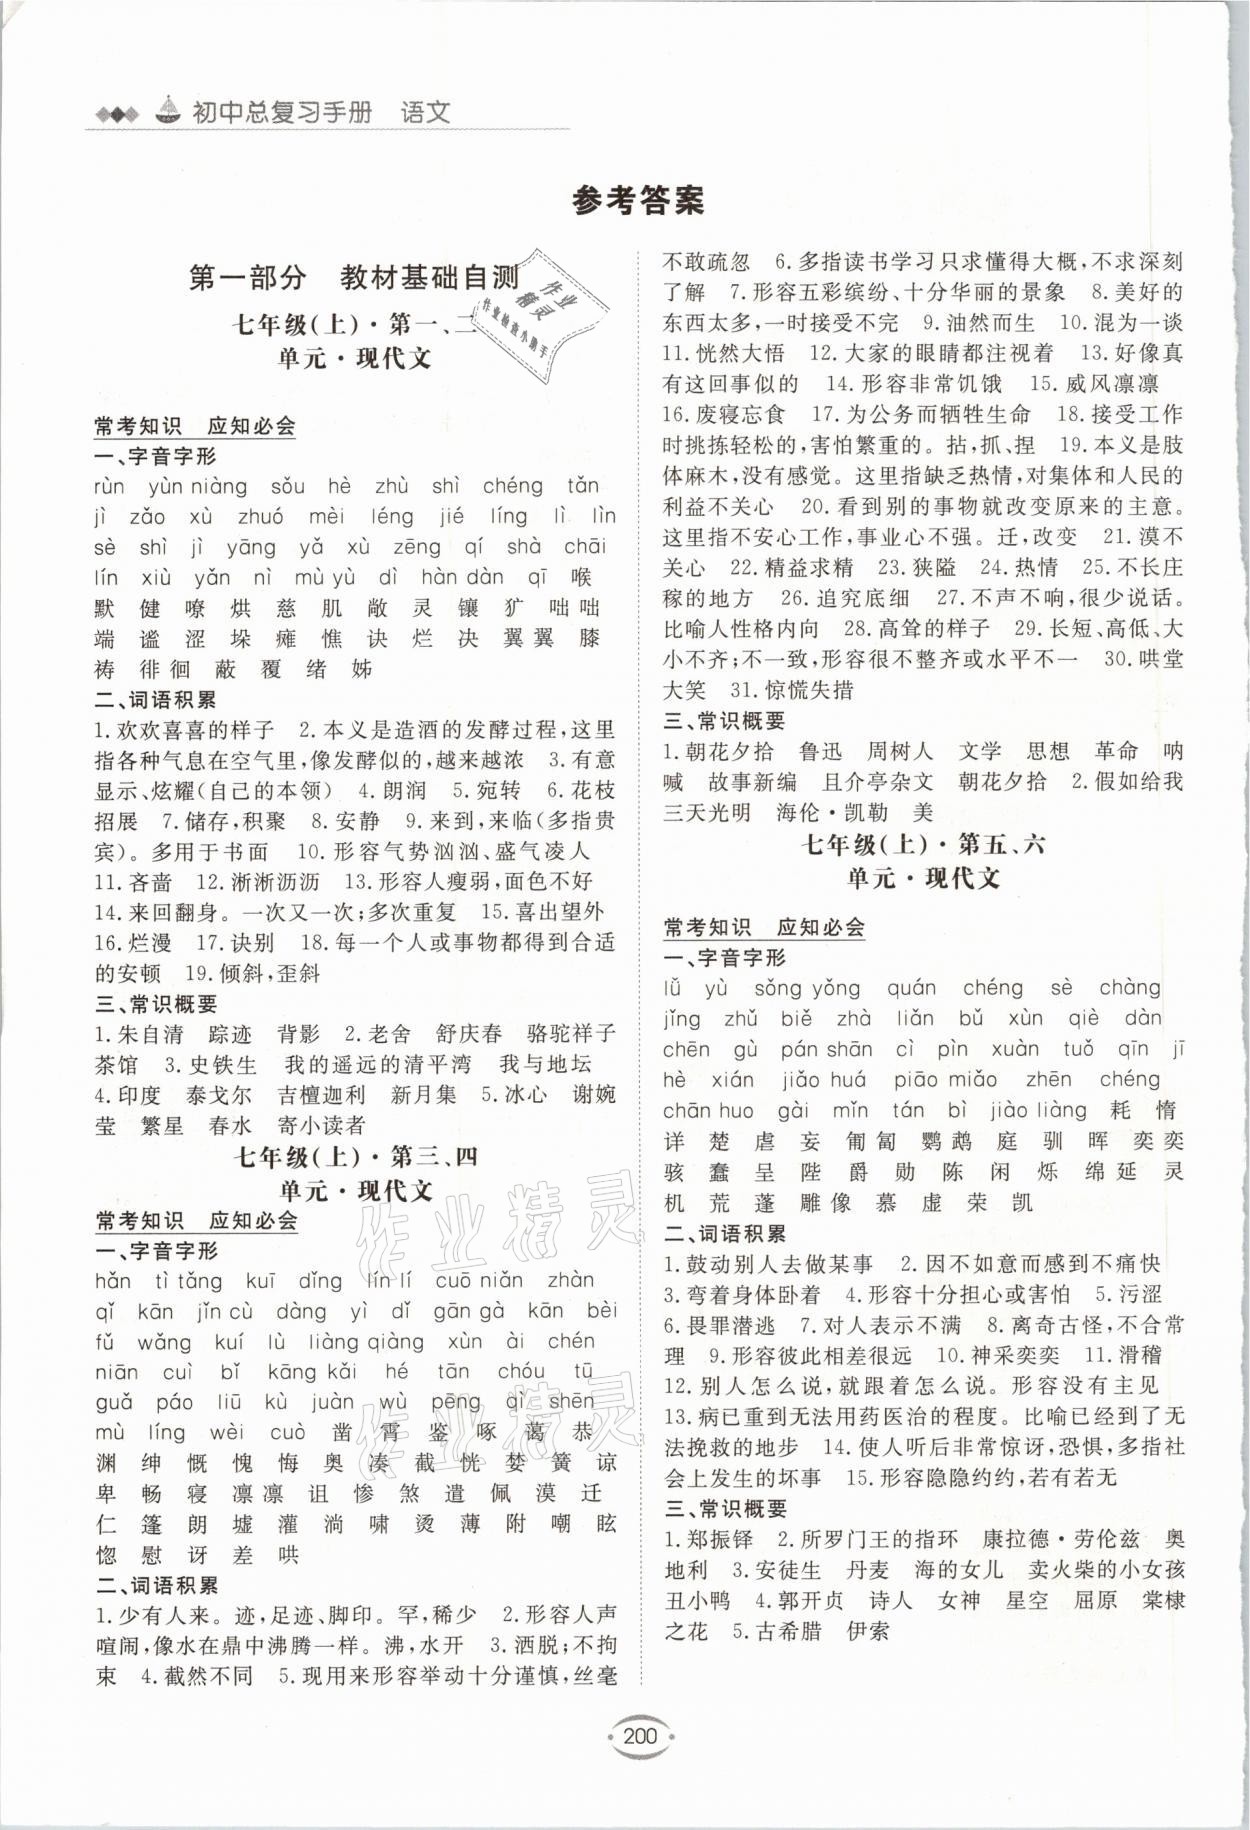 初中总复习手册 语文
参考答案
第一部分 教材基础自测
七年级(上)·第一、二
单元·现代文
常考知识 应知必会
一、字音字形
rùn yùn niàng sǒu hè zhù shì chéng tǎn
jì zǎo xù zhuó mèi léng jié líng lì lìn
sè shì jì yāng yǎ xù zēng qí shà chāi
lín xiù yǎn nì mù yù dì hàn dàn qī 喉
默 健 嘹 烘 慈 肌 敞 灵 镶 犷 咄咄
端 谧 涩 垛 瘫 憔 诀 烂 决 翼翼 膝
祷 徘徊 蔽 覆 绪 姊
二、词语积累
1.欢欢喜喜的样子 2.本义是造酒的发酵过程,这里
指各种气息在空气里,像发酵似的,越来越浓 3.有意
显示、炫耀(自己的本领) 4.朗润 5.宛转 6.花枝
招展 7.储存,积聚 8.安静 9.来到,来临(多指贵
宾)。多用于书面 10.形容气势汹汹、盛气凌人
11.吝啬 12.淅淅沥沥 13.形容人瘦弱,面色不好
14.来回翻身。一次又一次;多次重复 15.喜出望外
16.烂漫 17.诀别 18.每一个人或事物都得到合适
的安顿 19.倾斜,歪斜
三、常识概要
1.朱自清 踪迹 背影 2.老舍 舒庆春 骆驼祥子
茶馆 3.史铁生 我的遥远的清平湾 我与地坛
4.印度 泰戈尔 吉檀迦利 新月集 5.冰心 谢婉
莹 繁星 春水 寄小读者
七年级(上)·第三、四
单元·现代文
常考知识 应知必会
一、字音字形
hǎn tì tǎng kuī dǐng lín lí cuō niǎn zhàn
qǐ kān jǐn cù dàng yì dǐ gān gà kān bèi
fǔ wǎng kuí lù liàng qiàng xùn ài chén
niān cuì bǐ kāng kǎi hé tān chóu tū
guǎ páo liū kù juàn wù pēng qì shēn
mù líng wèi cuò 凿 霄 鉴 啄 蔼 恭
渊 绅 慨 愧 悔 奥 凑 截 恍 婪 簧 谅
卑 畅 寝 凛凛 诅 惨 煞 遣 佩 漠 迁
仁 篷 朗 墟 灌 淌 啸 烫 薄 附 嘲 眩
惚 慰 讶 差 哄
二、词语积累
1.少有人来。迹,足迹、脚印。罕,稀少 2.形容人声
喧闹,像水在鼎中沸腾一样。沸,水开 3.洒脱;不拘
束 4.截然不同 5.现用来形容举动十分谨慎,丝毫
不敢疏忽 6.多指读书学习只求懂得大概,不求深刻
了解 7.形容五彩缤纷、十分华丽的景象 8.美好的
东西太多,一时接受不完 9.油然而生 10.混为一谈
11.恍然大悟 12.大家的眼睛都注视着 13.好像真
有这回事似的 14.形容非常饥饿 15.威风凛凛
16.废寝忘食 17.为公务而牺牲生命 18.接受工作
时挑拣轻松的,害怕繁重的。拈,抓、捏 19.本义是肢
体麻木,没有感觉。这里指缺乏热情,对集体和人民的
利益不关心 20.看到别的事物就改变原来的主意。
这里指不安心工作,事业心不强。迁,改变 21.漠不
关心 22.精益求精 23.狭隘 24.热情 25.不长庄
稼的地方 26.追究底细 27.不声不响,很少说话。
比喻人性格内向 28.高耸的样子 29.长短、高低、大
小不齐;不一致,形容很不整齐或水平不一 30.哄堂
大笑 31.惊慌失措
三、常识概要
1.朝花夕拾 鲁迅 周树人 文学 思想 革命 呐
喊 故事新编 且介亭杂文 朝花夕拾 2.假如给我
三天光明 海伦·凯勒 美
七年级(上)·第五、六
单元·现代文
常考知识 应知必会
一、字音字形
lǚ yù sǒng yǒng quán chéng sè chàng
jǐng zhǔ biě zhà liǎn bǔ xùn qiè dàn
chēn gù pán shān cì pìn xuàn tuǒ qīn jī
hè xián jiǎo huá piāo miǎo zhēn chéng
chān huo gài mǐn tán bì jiào liàng 耗 惰
详 楚 虐 妄 匍匐 鹦鹉 庭 驯 晖 奕奕
骇 蠢 呈 陛 爵 勋 陈 闲 烁 绵延 灵
机 荒 蓬 雕像 慕 虚 荣 凯
二、词语积累
1.鼓动别人去做某事 2.因不如意而感到不痛快
3.弯着身体卧着 4.形容十分担心或害怕 5.污涩
6.畏罪潜逃 7.对人表示不满 8.离奇古怪,不合常
理 9.形容彼此相差很远 10.神采奕奕 11.滑稽
12.别人怎么说,就跟着怎么说。形容没有主见
13.病已重到无法用药医治的程度。比喻已经到了无
法挽救的地步 14.使人听后非常惊讶,恐惧,多指社
会上发生的坏事 15.形容隐隐约约,若有若无
三、常识概要
1.郑振铎 2.所罗门王的指环 康拉德·劳伦兹 奥
地利 3.安徒生 丹麦 海的女儿 卖火柴的小女孩
丑小鸭 4.郭开贞 诗人 女神 星空 屈原 棠棣
之花 5.古希腊 伊索
200
作业
精灵
作业检查小助手
作业精灵
作业精灵